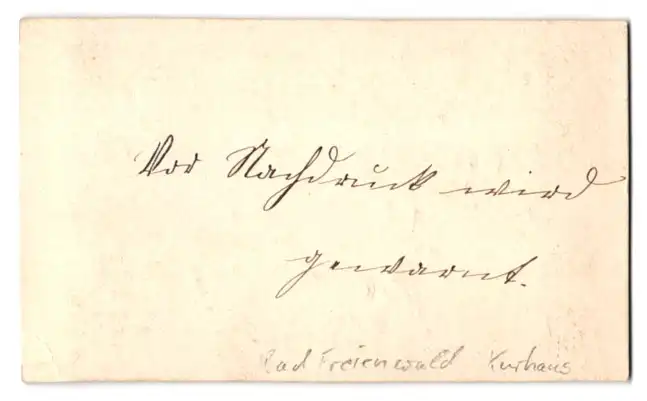 Vor Nachdruck wird
gewarnt.
Bad Freienwald Kurhaus